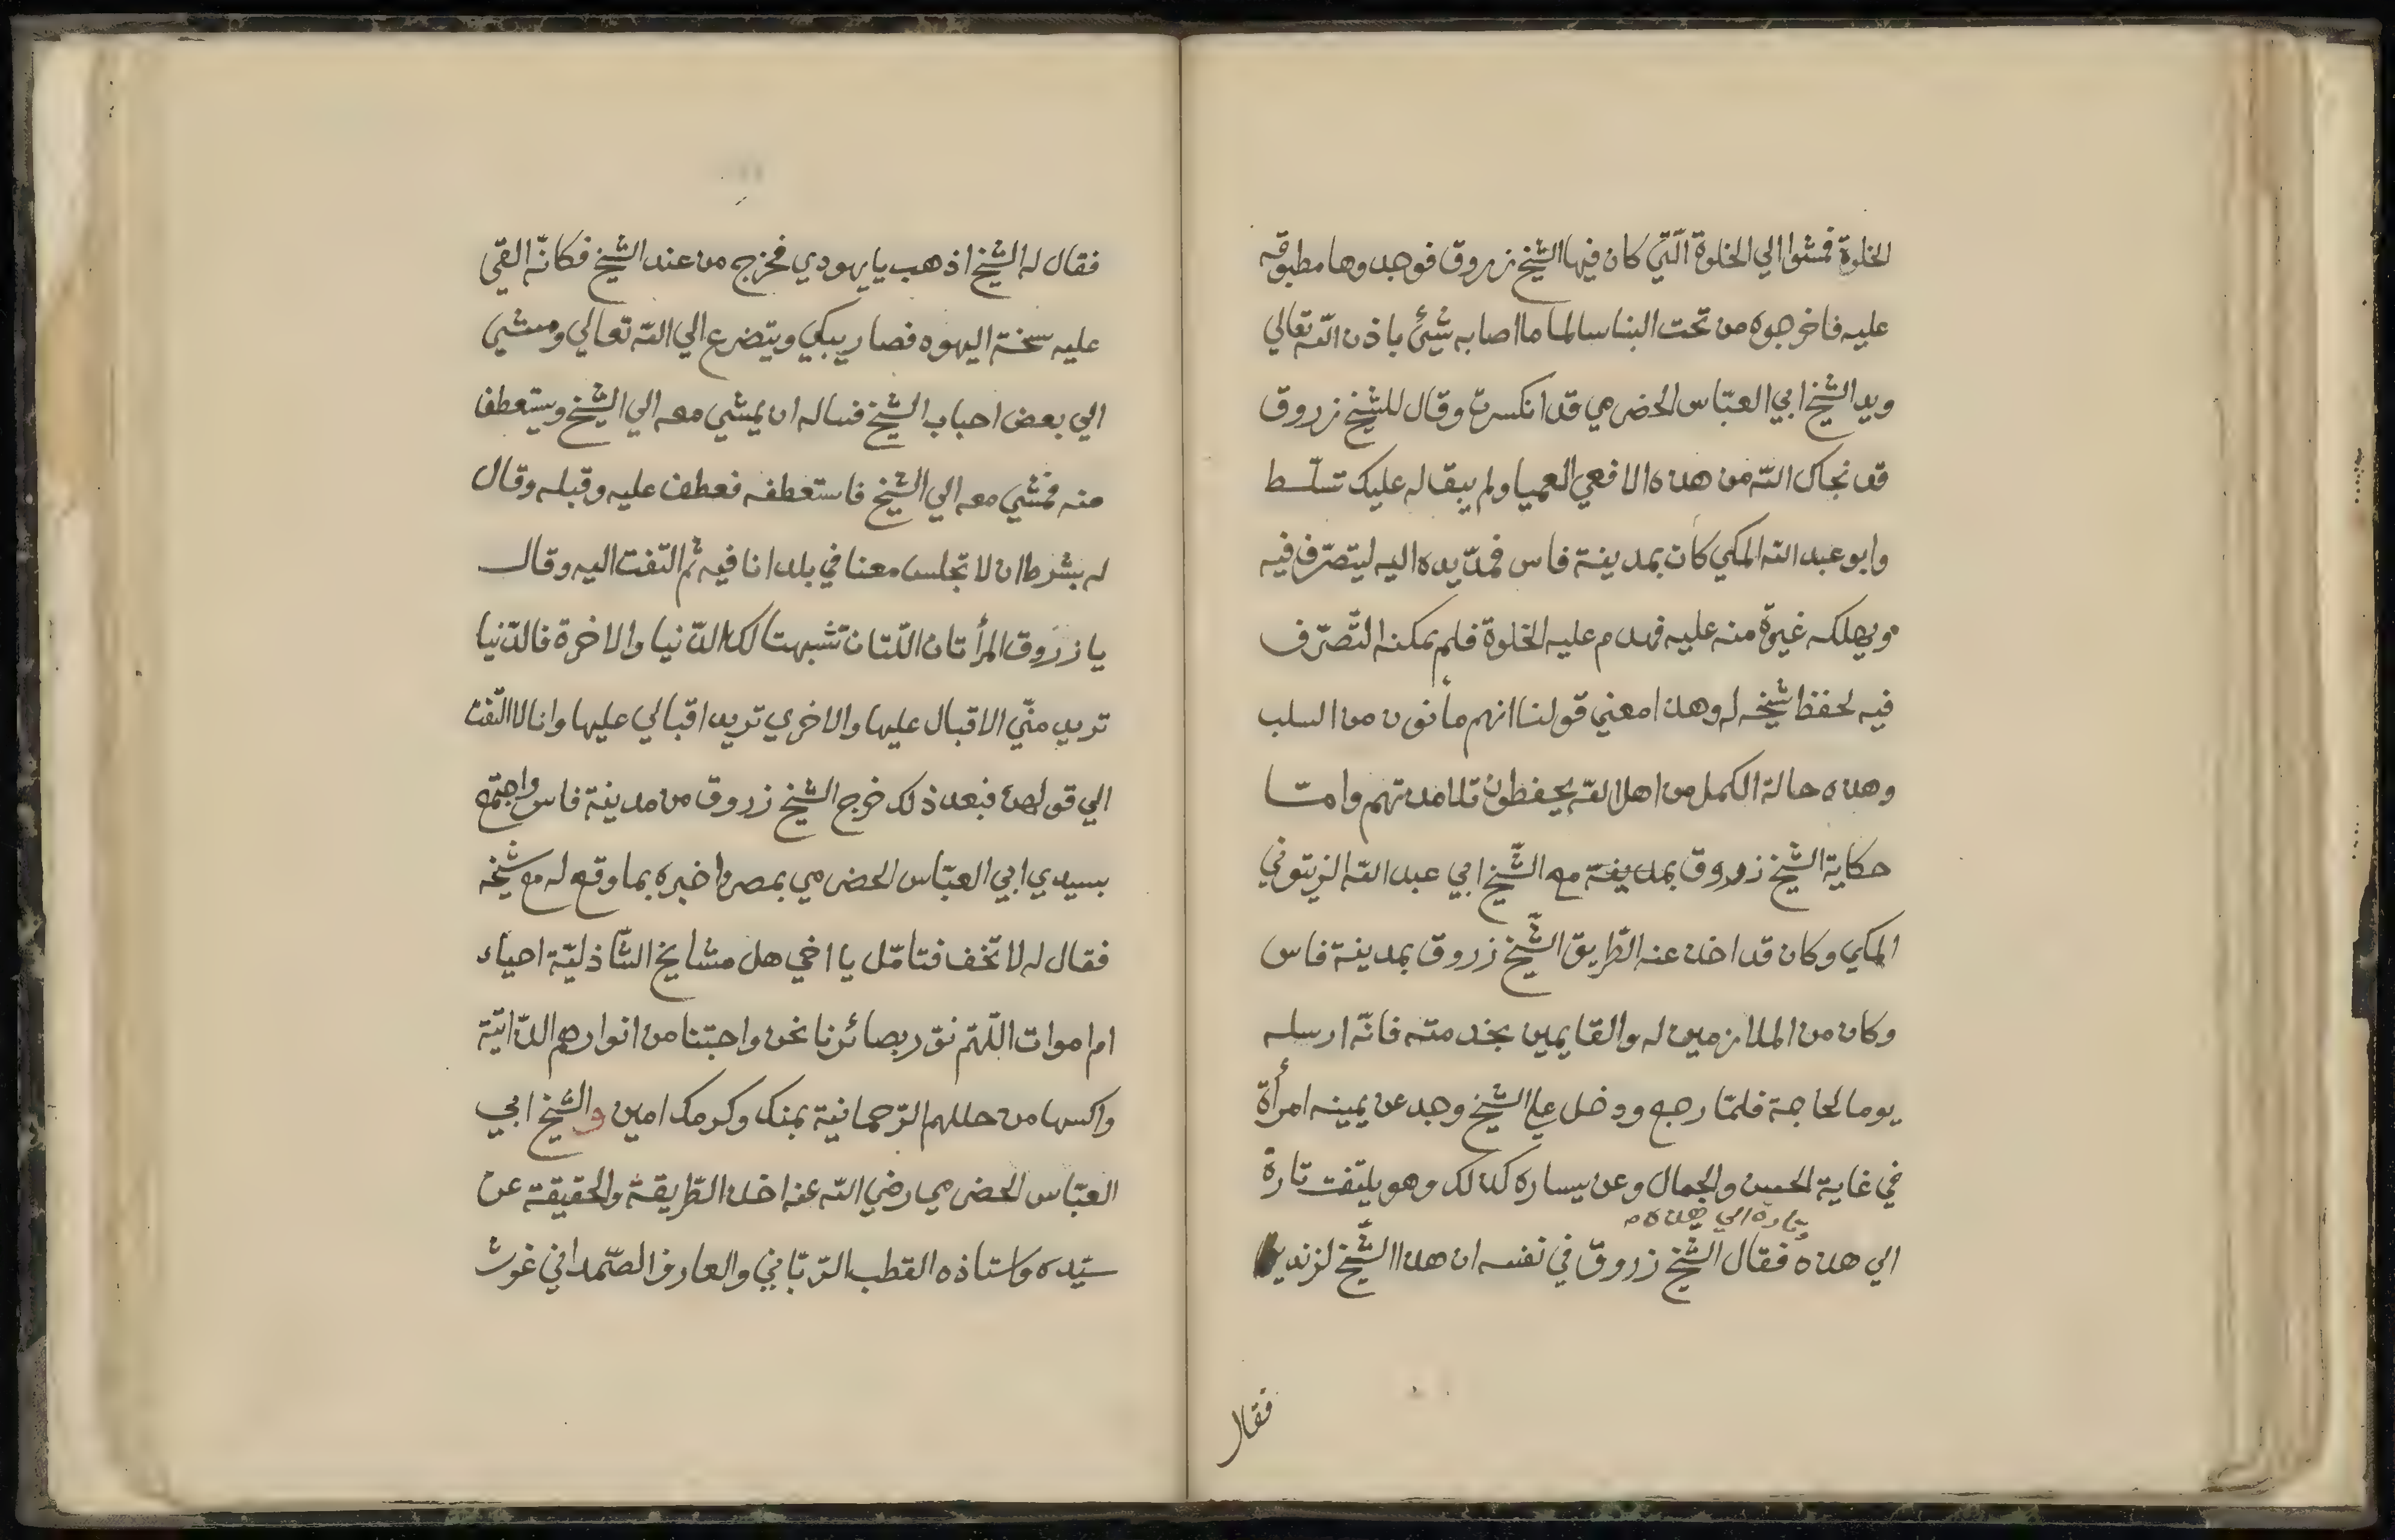 الخلوة فمشوا الي الخلوة الّتي كان فيها الشّيخ زروق فوجدوها مطبوقه
عليه فاخرجوه من تحت البنا سالما ما اصابه شئ باذن اللّه تعالي
ويد الشّيخ ابي العبّاس الحضرمي قد انكسرت وقال للشّيخ زروق
قد نجاك اللّه من هذه الافعي العميا ولم يبقا له عليك تسلّط
وابو عبد اللّه المكي كان بمدينة فاس فمدّ يده اليه ليتصرّف فيه
ويهلكه غيرة منه عليه فهدم عليه الخلوة فلم يمكنه التّصرّف
فيه لحفظ شيخه له وهذا معني قولنا انهم مأنون من السلب
وهذه حالة الكمل من اهل اللّه يحفظون تلامدتهم وامّا
حكاية الشّيخ زروق بمدينة مع الشّيخ ابي عبد اللّه الزيتوني
المكي وكان قد اخذ عنه الطّريق الشّيخ زروق بمدينة فاس
وكان من الملازمين له والقايمين بخدمته فانّه ارسله
يوما لحاجة فلمّا رجع ودخل علي الشّيخ وجد عن يمينه امرأة
في غاية الحسن والجمال وعن يساره كذلك وهو يلتفت تارة
وتارة الي هذه
الي هذه فقال الشّيخ زروق في نفسه ان هذا الشّيخ لزنديق
فقال
فقال له الشّيخ اذهب يا يهودي فخرج من عند الشّيخ فكانّه القي
عليه سخنة اليهود فصار يبكي ويتضرع الي اللّه تعالي ومشي
الي بعض احباب الشّيخ فساله ان يمشي معه الي الشّيخ ويستعطف
منه فمشي معه الي الشّيخ فاستعطفه فعطف عليه وقبله وقال
له بشرط ان لا تجلس معنا في بلد انا فيه ثم التفت اليه وقال
يا زرّوق المرأتان اللّتان تشبهتا لك الدّنيا والاخرة فالدّنيا
تريد منّي الاقبال عليها والاخري تريد اقبالي عليها وانا لا التفت
الي قولهن فبعد ذلك خرج الشّيخ زروق من مدينة فاس واجتمع
بسيدي ابي العبّاس الحضرمي بمصر واخبره بما وقع له مع شيخه
فقال له لا تخف فتامّل يا اخي هل مشايخ الشّاذليّة احياء
ام اموات اللّهمّ نوّر بصائرنا نحن واحبّتنا من انوارهم الدّاتيّة
واكسها من حللهم الرّحمانية بمنك وكرمك امين والشّيخ ابي
العبّاس الحضرمي رضي اللّه عنه اخذ الطّريقة والحقيقة عن
سيّده واستاذه القطب الرّبّاني والعارف الصّمداني غوث